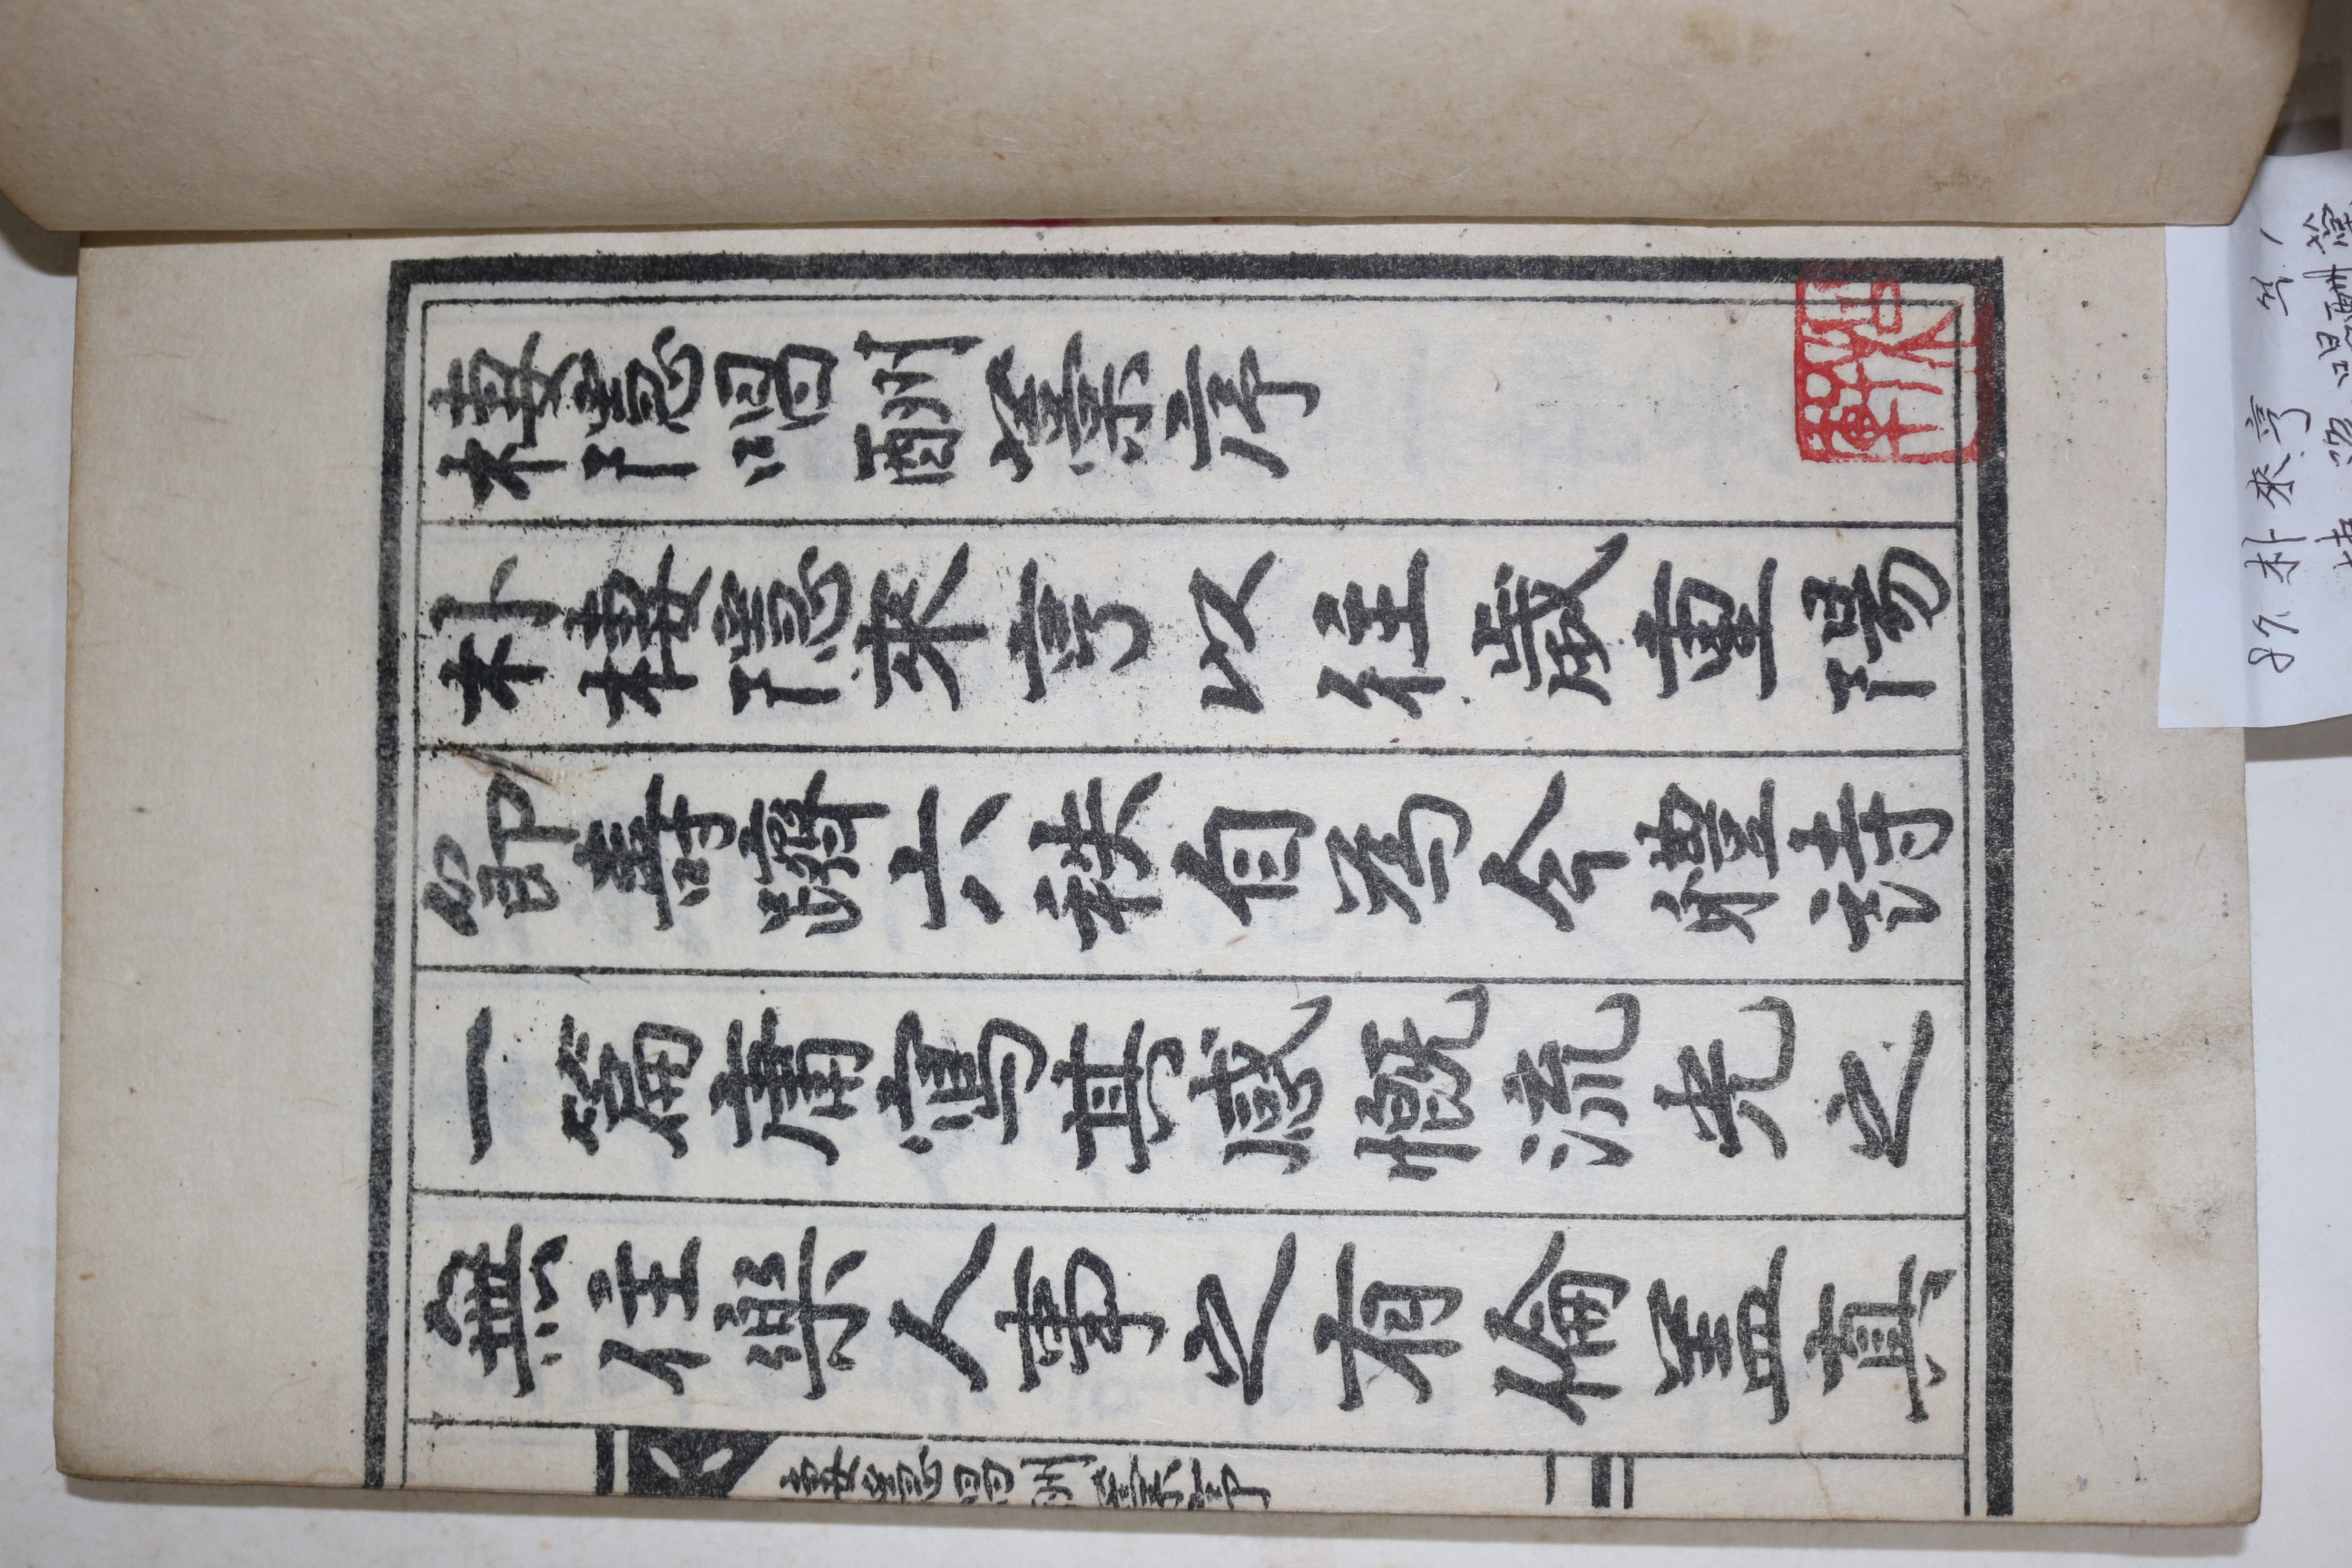 棲隱唱酬藁序
朴棲隱來亨以往歲重陽
節壽躋六秩自為今體詩
一篇庸寫其感慨流光之
無住樂人事之有倫盖真
棲隱唱酬藁序
一
87. 朴來亨
棲隱唱酬藁